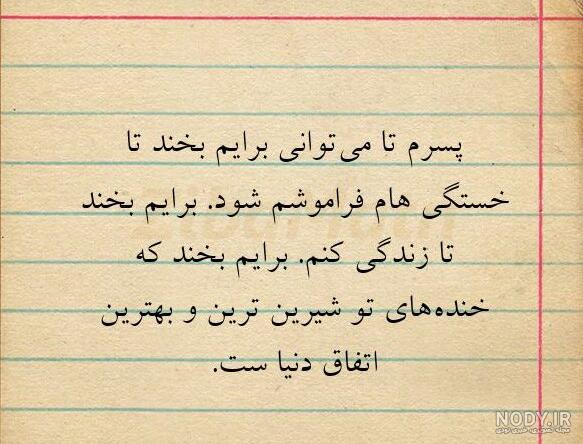 پسرم تا می‌توانی برایم بخند تا
خستگی هام فراموشم شود. برایم بخند
تا زندگی کنم. برایم بخند که
خنده‌های تو شیرین ترین و بهترین
اتفاق دنیا ست.
NODY.IR